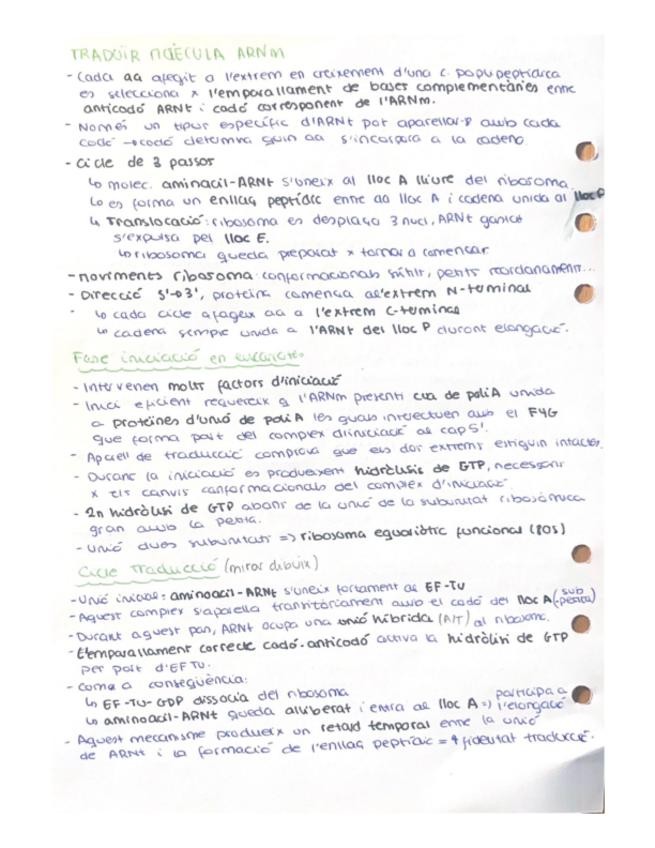 TRADUIR MOLÈCULA ARNm
- Cada aa afegit a l'extrem en creixement d'una c. polipeptídica
es selecciona x l'emparallament de bases complementàries entre
anticodó ARNt i codó corresponent de l'ARNm.
- Només un tipus específic d'ARNt pot aparellar-se amb cada
codó → codó determina quin aa s'incorpora a la cadena
- Cicle de 3 passos
↳ molec. aminoacil-ARNt s'uneix al lloc A lliure del ribosoma
↳ es forma un enllaç peptídic entre aa lloc A i cadena unida al lloc P
↳ Translocació: ribosoma es desplaça 3 nucl, ARNt gastat
s'expulsa pel lloc E.
↳ ribosoma queda preparat x tornar a començar
- moviments ribosoma: conformacionals sutils, petits reordenaments...
- Direcció 5'→3', proteïna comença a l'extrem N-terminal
↳ cada cicle afegeix aa a l'extrem C-terminal
↳ cadena sempre unida a l'ARNt del lloc P durant elongació.
Fase iniciació en eucariotes
- Intervenen molts factors d'iniciació
- Inici eficient requereix q l'ARNm presenti cua de poliA unida
a proteïnes d'unió de poliA les quals interectuen amb el F4G
que forma part del complex d'iniciació al cap 5'.
- Aparell de traducció comprova que els dos extrems estiguin intactes.
- Durant la iniciació es produeixen hidròlisis de GTP, necessaris
x els canvis conformacionals del complex d'iniciació
- 2n hidròlisi de GTP abans de la unió de la subunitat ribosòmica
gran amb la petita.
- Unió dues subunitats => ribosoma eucariòtic funcional (80S)
Cicle Traducció (mirar dibuix)
- Unió inicial: aminoacil-ARNt s'uneix fortament al EF-TU
- Aquest complex s'aparella transitòriament amb el codó del lloc A (sub. petita)
- Durant aquest pas, ARNt ocupa una unió híbrida (A/T) al ribosoma.
- L'emparallament correcte codó-anticodó activa la hidròlisi de GTP
per part d'EF TU.
- Coma a conseqüència:
↳ EF-TU-GDP dissocia del ribosoma
↳ aminoacil-ARNt queda alliberat i entra al lloc A => participa a l'elongació
- Aquest mecanisme produeix un retard temporal entre la unió
de ARNt i la formació de l'enllaç peptídic = ↑ fidelitat traducció.